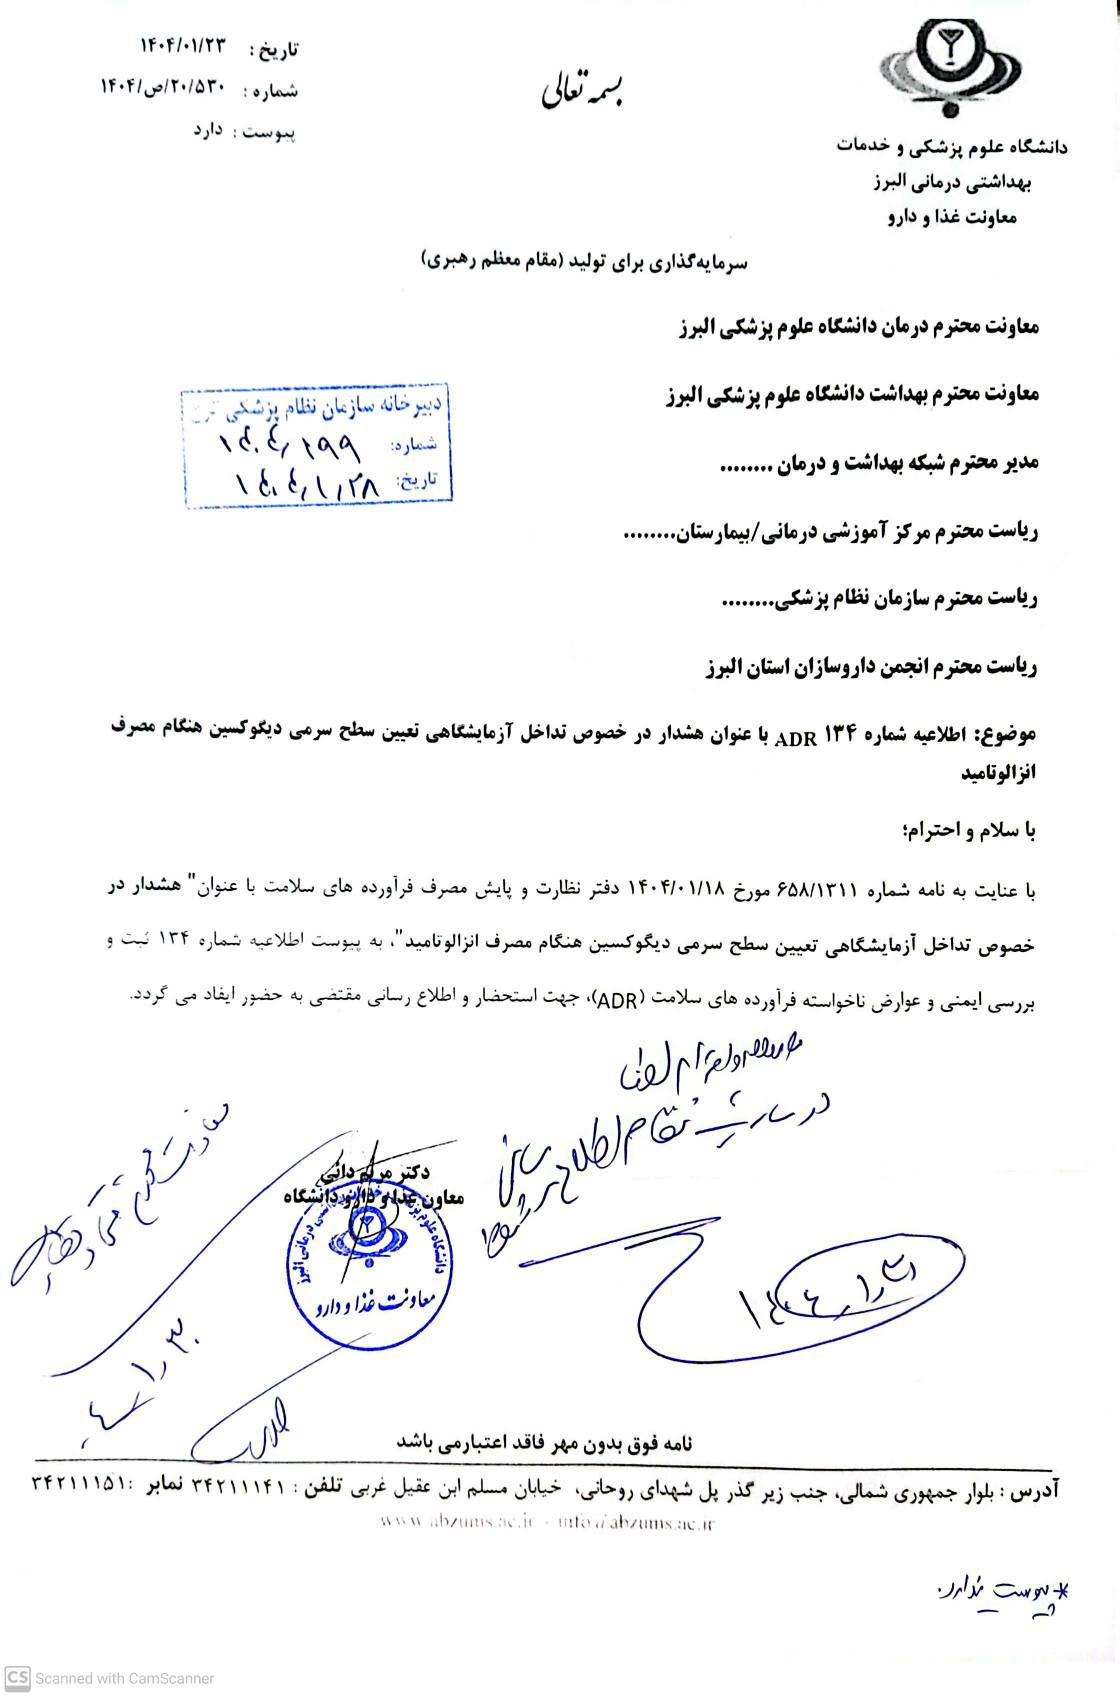 تاریخ : ۱۴۰۴/۰۱/۲۳
شماره : ۱۴۰۴/ص/۲۰/۵۳۰
پیوست : دارد
بسمه تعالی
دانشگاه علوم پزشکی و خدمات
بهداشتی درمانی البرز
معاونت غذا و دارو
سرمایه‌گذاری برای تولید (مقام معظم رهبری)
معاونت محترم درمان دانشگاه علوم پزشکی البرز
معاونت محترم بهداشت دانشگاه علوم پزشکی البرز
مدیر محترم شبکه بهداشت و درمان ........
ریاست محترم مرکز آموزشی درمانی/بیمارستان........
ریاست محترم سازمان نظام پزشکی........
ریاست محترم انجمن داروسازان استان البرز
دبیرخانه سازمان نظام پزشکی کرج
شماره: ۱۴۰۴/۲۹۹
تاریخ: ۱۴۰۴/۱/۲۸
موضوع: اطلاعیه شماره ۱۳۴ ADR با عنوان هشدار در خصوص تداخل آزمایشگاهی تعیین سطح سرمی دیگوکسین هنگام مصرف
انزالوتامید
با سلام و احترام؛
با عنایت به نامه شماره ۶۵۸/۱۳۱۱ مورخ ۱۴۰۴/۰۱/۱۸ دفتر نظارت و پایش مصرف فرآورده های سلامت با عنوان" هشدار در
خصوص تداخل آزمایشگاهی تعیین سطح سرمی دیگوکسین هنگام مصرف انزالوتامید"، به پیوست اطلاعیه شماره ۱۳۴ ثبت و
بررسی ایمنی و عوارض ناخواسته فرآورده های سلامت (ADR)، جهت استحضار و اطلاع رسانی مقتضی به حضور ایفاد می گردد.
در سایت نظام اطلاع رسانی
شود
۱۴۰۴/۱/۳۱
معاونت محترم
۰۴/۱/۳۰
دکتر مریم دائی
معاون غذا و دارو دانشگاه
معاونت غذا و دارو
نامه فوق بدون مهر فاقد اعتبارمی باشد
آدرس : بلوار جمهوری شمالی، جنب زیر گذر پل شهدای روحانی، خیابان مسلم ابن عقیل غربی تلفن : ۳۴۲۱۱۱۴۱ نمابر :۳۴۲۱۱۱۵۱
www.abzums.ac.ir - info@abzums.ac.ir
* پیوست ندارد.
CS Scanned with CamScanner